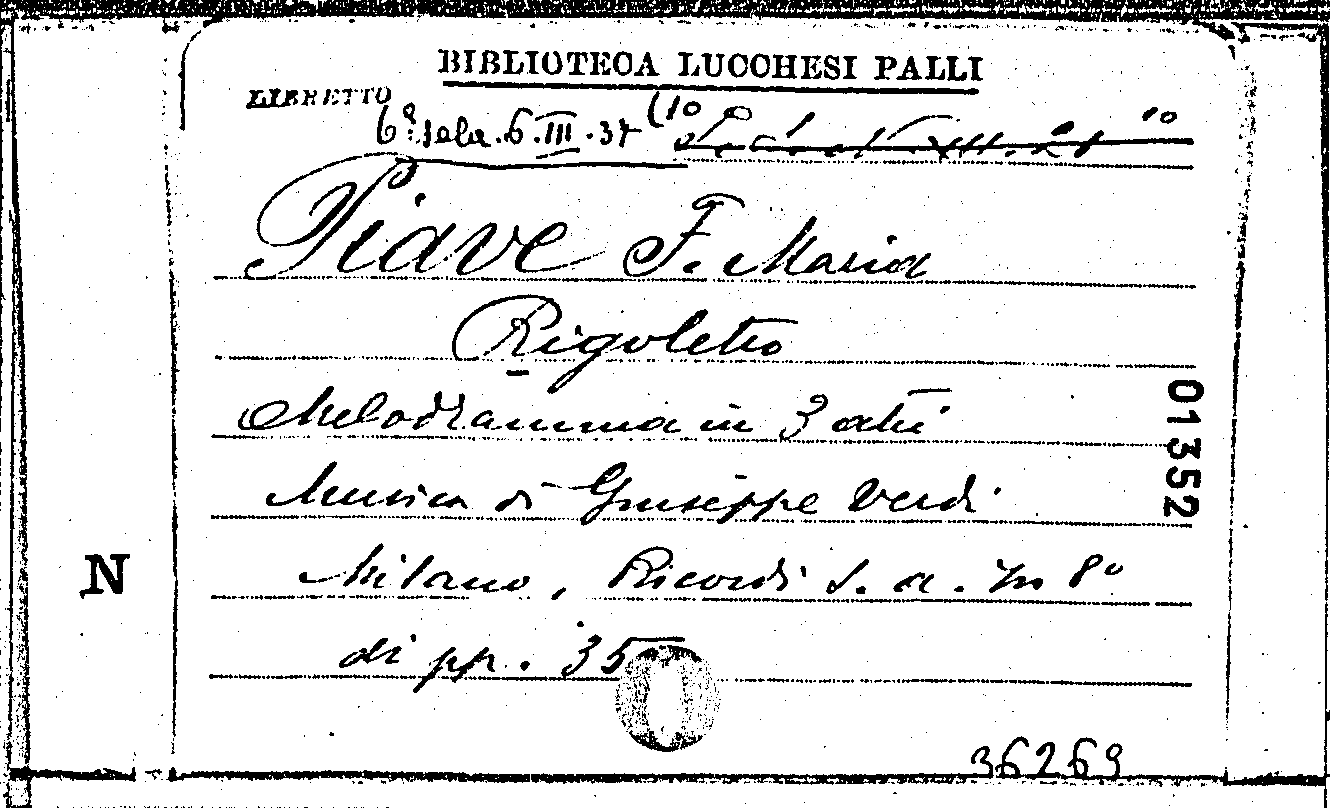 BIBLIOTECA LUCCHESI PALLI
LIBRETTO
6ª Sala. 6. III. 37 (10
Piave F. Maria
Rigoletto
Melodramma in 3 atti
Musica di Giuseppe Verdi
Milano, Ricordi s. a. In 8º
di pp. 35
N
01352
36269